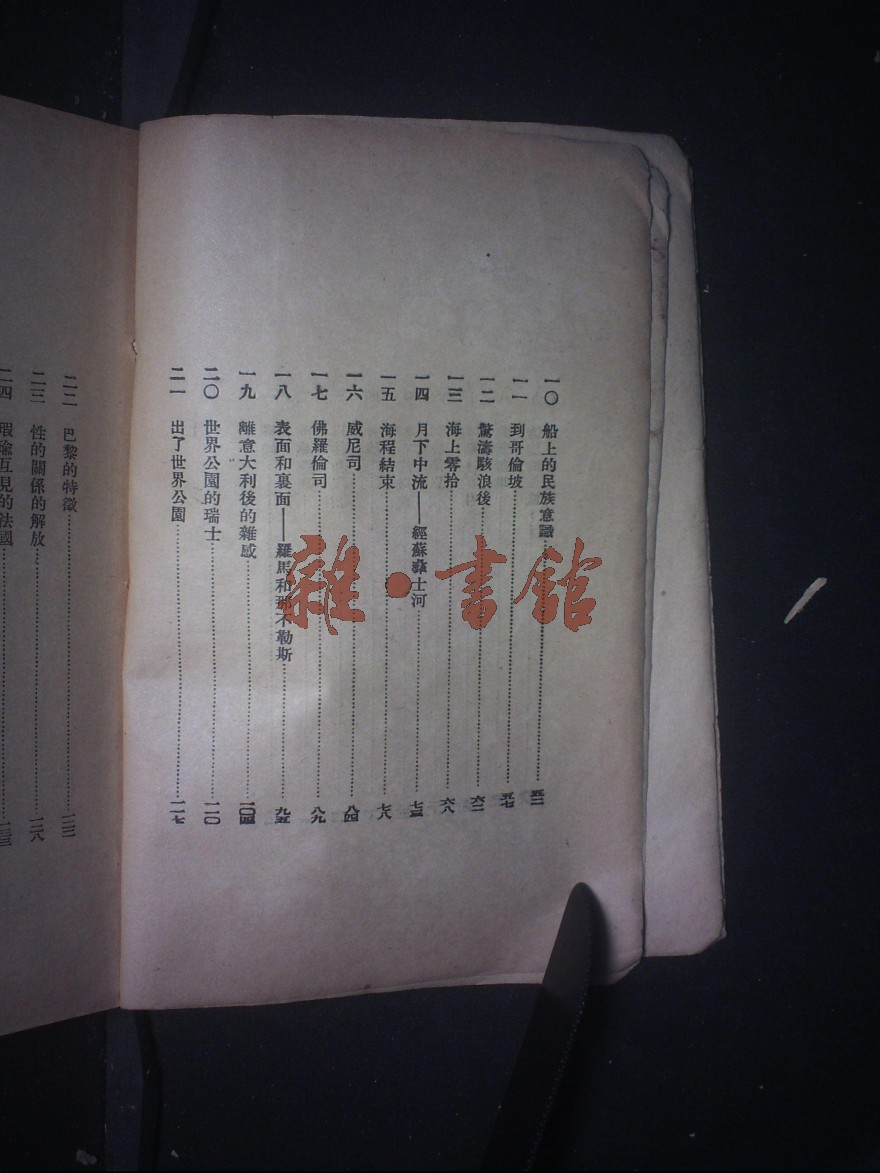 一〇 船上的民族意識……五二
一一 到哥倫坡……五七
一二 驚濤駭浪後……六二
一三 海上零拾……六八
一四 月下中流——經蘇彝士河……七三
一五 海程結束……七八
一六 威尼司……八四
一七 佛羅倫司……八九
一八 表面和裏面——羅馬和那不勒斯……九五
一九 離意大利後的雜感……一〇四
二〇 世界公園的瑞士……一一〇
二一 出了世界公園……一一七
二二 巴黎的特徵……一二三
二三 性的關係的解放……一二八
二四 瑕瑜互見的法國……
雜·書館